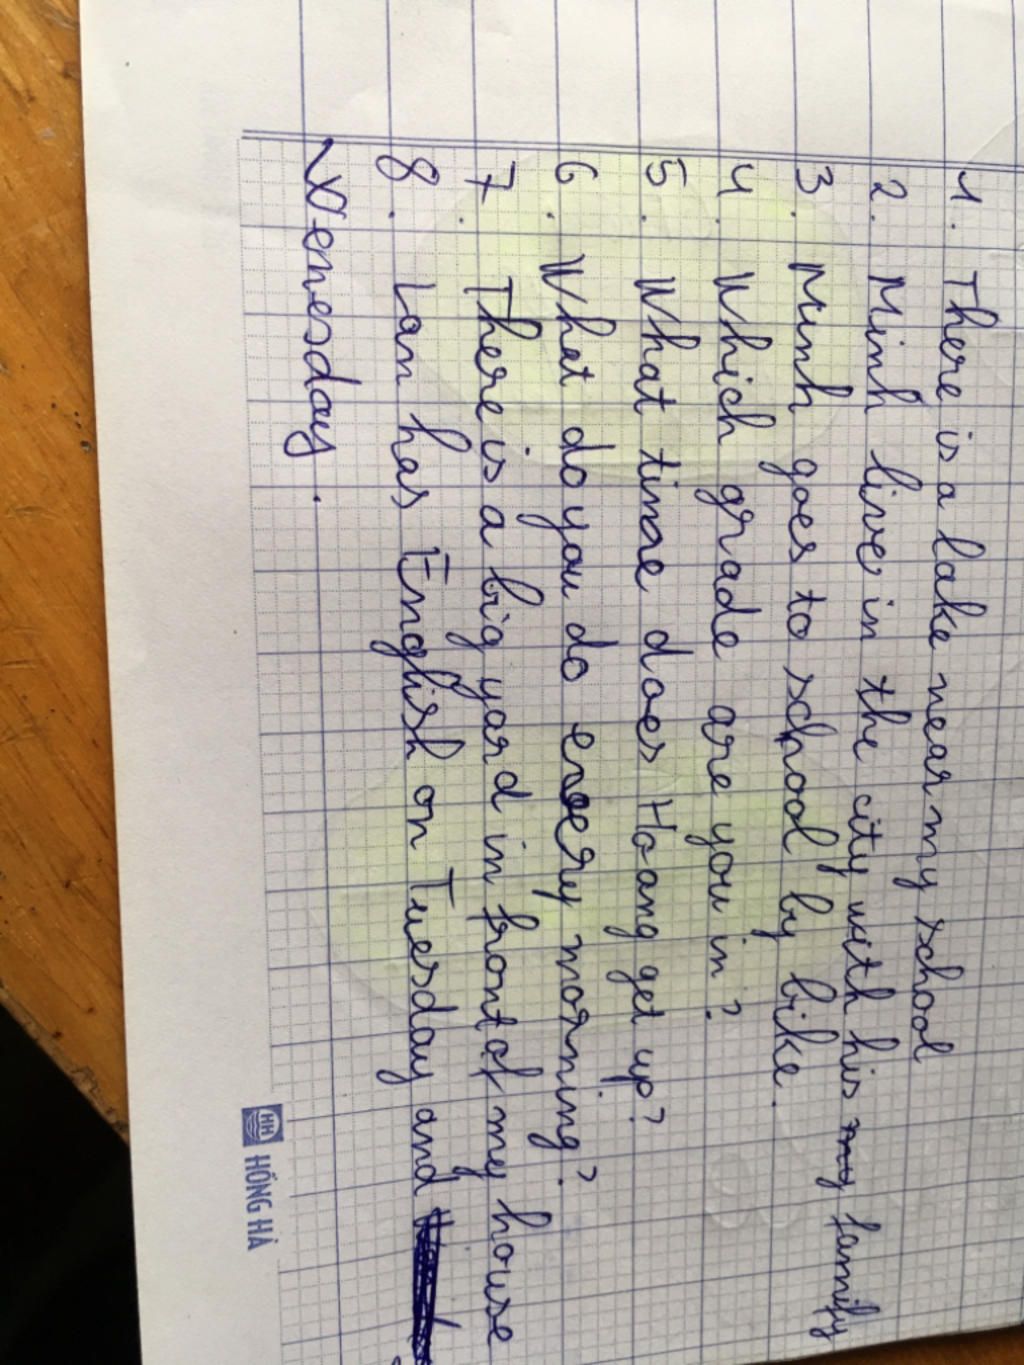 1. There is a lake near my school
2. Minh live in the city with his my family
3. Minh goes to school by bike.
4. Which grade are you in?
5. What time does Hoang get up?
6. What do you do every morning?
7. There is a big yard in front of my house
8. Lan has English on Tuesday and
Wenesday.
HH HỒNG HÀ